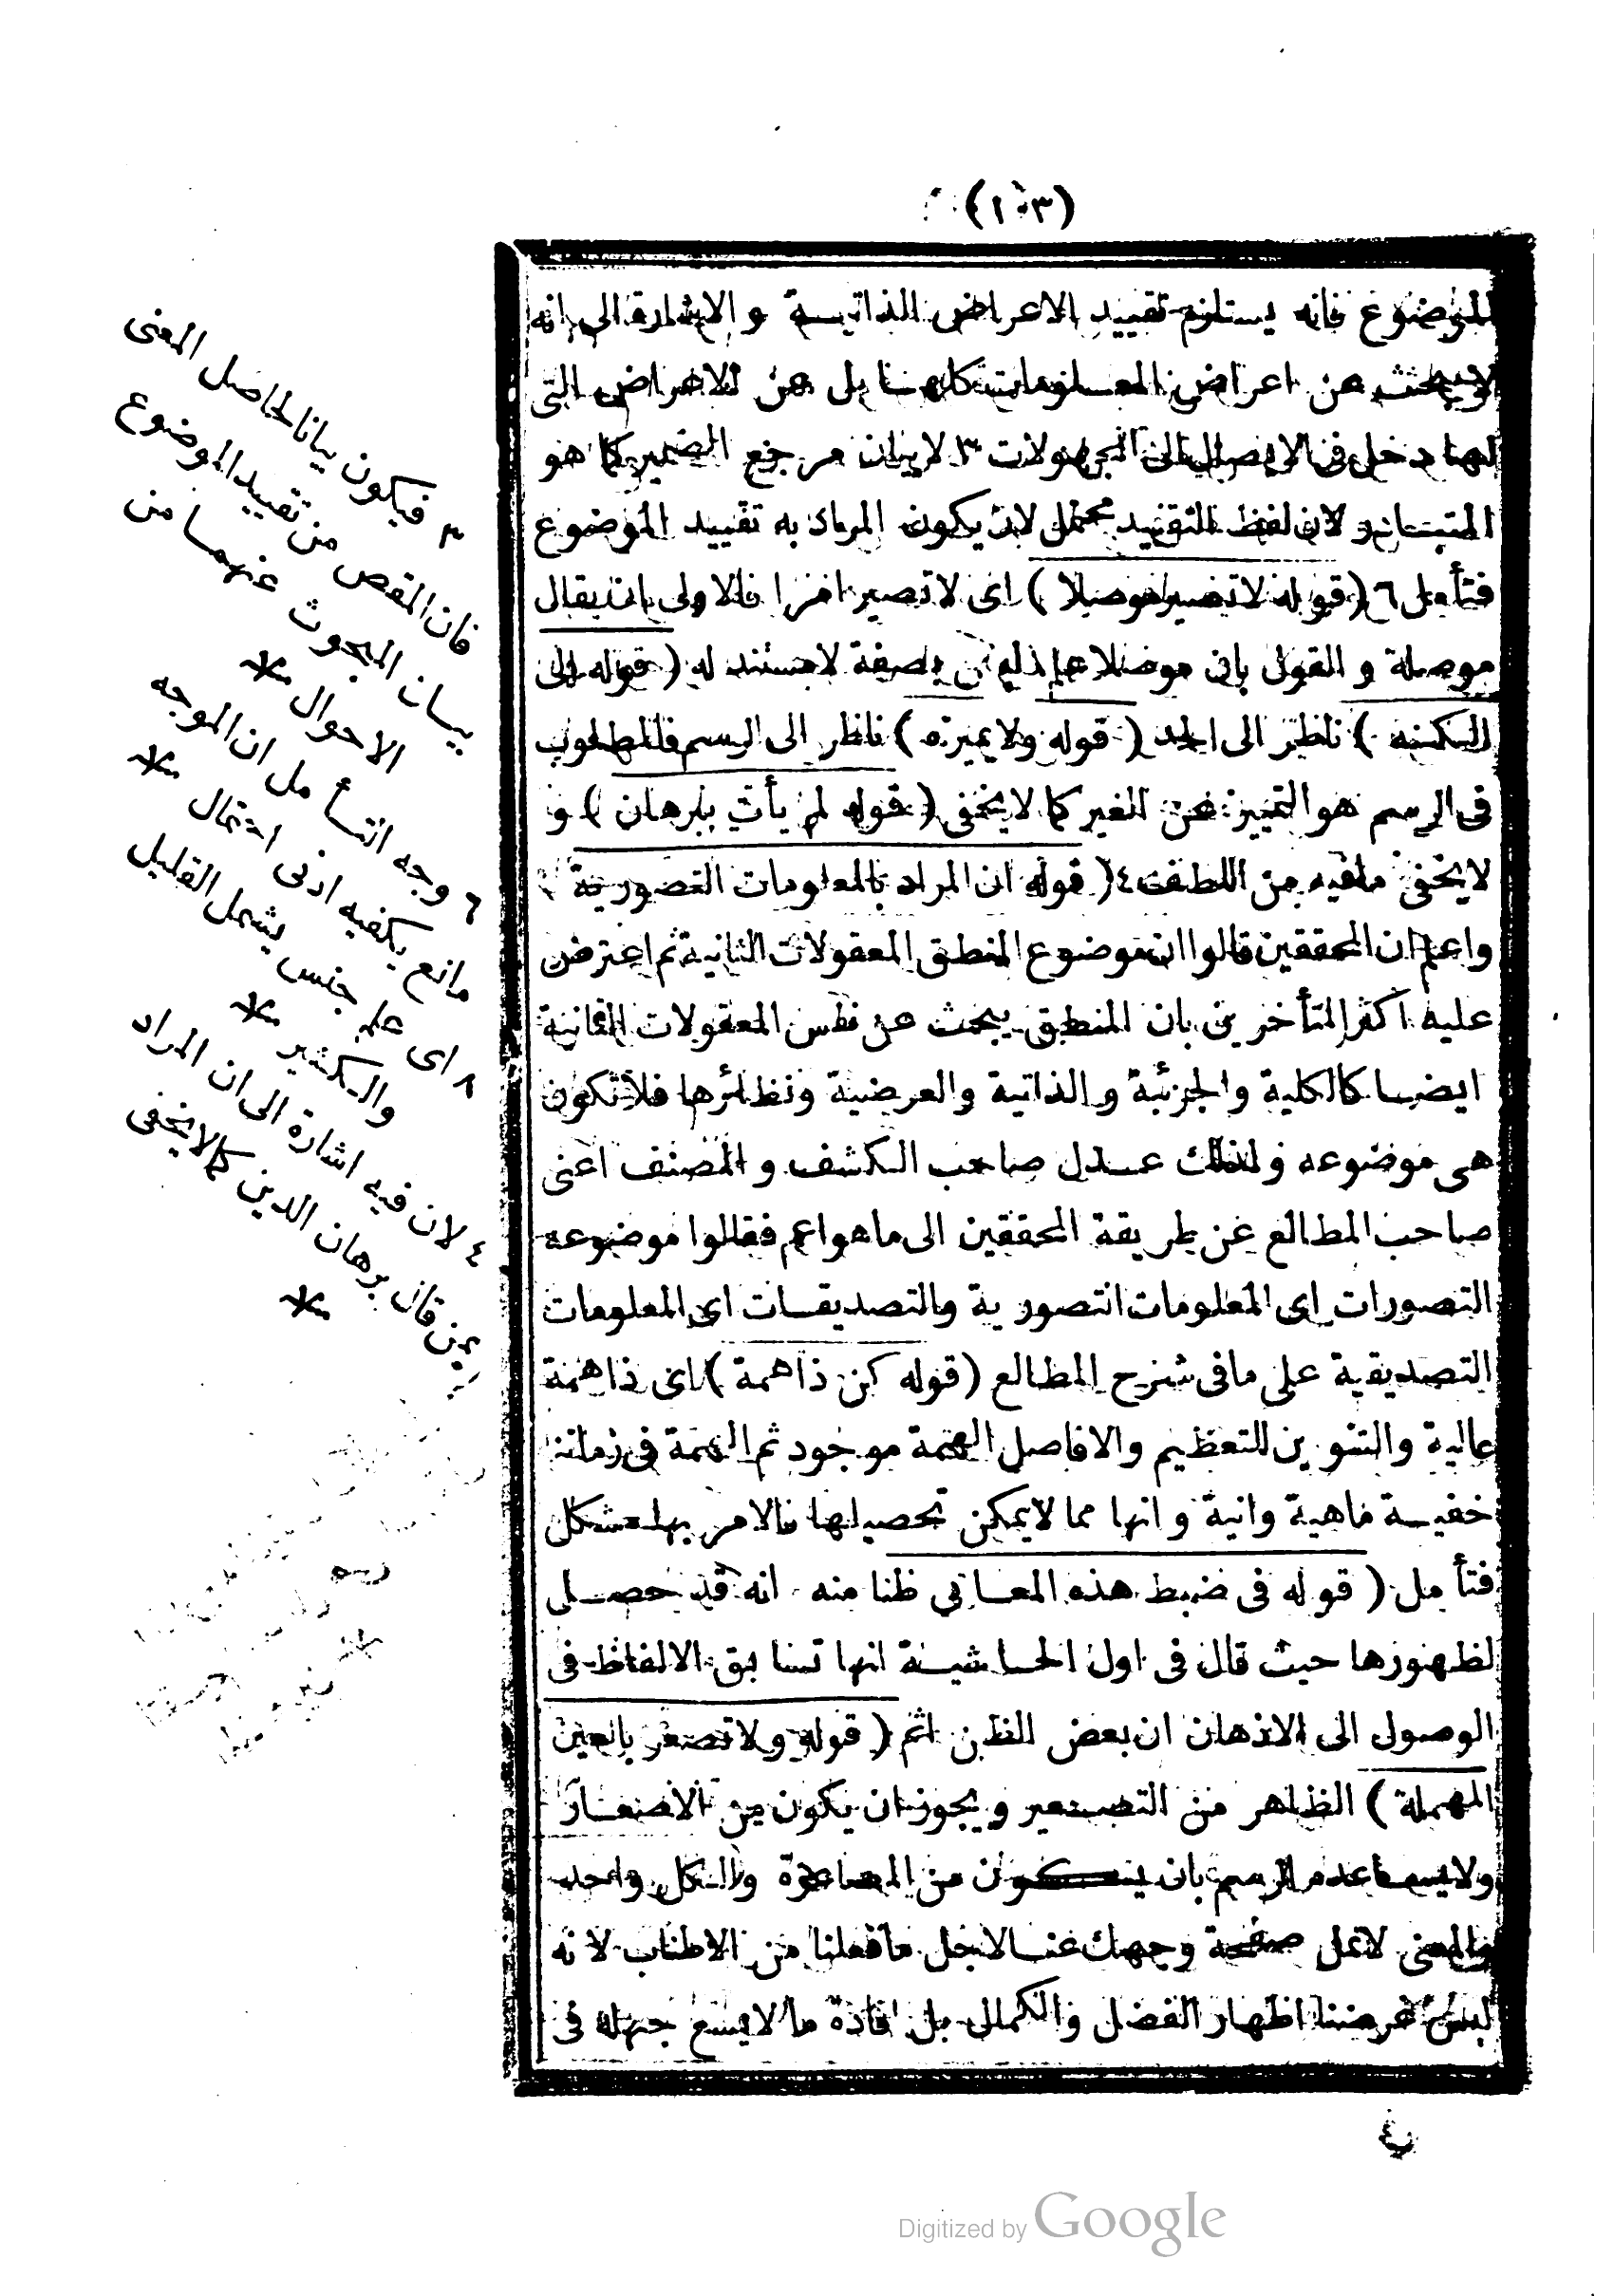 (١٠٣)
للموضوع فانه يستلزم تقييد الاعراض الذاتية و الاشارة الى انه
لا يبحث عن اعراض المعلومات كلها بل عن الاعراض التى
لها دخل فى الايصال الى المجهولات ٣ لا بيان مرجع الضمير كما هو
المتبادر لان لفظ التقييد محتمل لان يكون المراد به تقييد الموضوع
فتأمل ٦ (قوله لا تصير موصلا) اى لا تصير امرا فالاولى ان يقال
موصلة و القول بان موصلا صفة لا مستند له (قوله الى
الكنه) ناظر الى الحد (قوله ولا يميزه) ناظر الى الرسم فالمطلوب
فى الرسم هو التمييز عن الغير كما لا يخفى (قوله لم يأت ببرهان) و
لا يخفى مافيه من اللطف ٤ (قوله ان المراد بالمعلومات التصورية)
واعلم ان المحققين قالوا ان موضوع المنطق المعقولات الثانية ثم اعترض
عليه اكثر المتأخرين بان المنطق يبحث عن نفس المعقولات الثانية
ايضا كالكلية والجزئية و الذاتية والعرضية ونظائرها فلا تكون
هى موضوعه ولذلك عدل صاحب الكشف و المصنف اعنى
صاحب المطالع عن طريقة المحققين الى ماهو اعم فقالوا موضوعه
التصورات اى المعلومات التصورية والتصديقات اى المعلومات
التصديقية على مافى شرح المطالع (قوله كن ذاهمة) اى ذاهمة
عالية والتنوين للتعظيم والا فاصل الهمة موجود ثم الهمة فى زماننا
خفية ماهية وانية و انها مما لايمكن تحصيلها فالامر بها مشكل
فتأمل (قوله فى ضبط هذه المعانى ظنا منه انه قد حصل
لظهورها حيث قال فى اول الحاشية انها تسابق الالفاظ فى
الوصول الى الاذهان ان بعض الظن اثم (قوله ولا تصعر بالعين
المهملة) الظاهر من التصعير ويجوز ان يكون من الاصعار
ولا يساعده الرسم بان يكون من المصاعرة والكل واحد
والمعنى لا تمل صفحة وجهك عنا لاجل مافعلنا من الاطناب لانه
ليس غرضنا اظهار الفضل والكمال بل افادة ما لايسع جهله فى
٣ فيكون بيانا لحاصل المعنى
فان المقص من تقييد الموضوع
بيان المبحوث عنها من
الاحوال منه
٦ وجه التأمل ان الموجه
مانع يكفيه ادنى احتمال منه
٨ اى على جنس يشمل القليل
والكثير منه
٤ لان فيه اشارة الى ان المراد
قال برهان الدين كما لا يخفى
منه
Digitized by Google